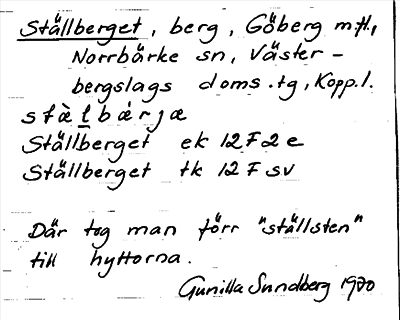 Ställberget, berg, Göberg m.fl.,
Norrbärke sn, Väster-
bergslags doms.tg, Kopp.l.
stæ̀ḷbæ̀rjæ
Ställberget ek 12F2e
Ställberget tk 12F SV
Där tog man förr "ställsten"
till hyttorna.
Gunilla Sundberg 1970